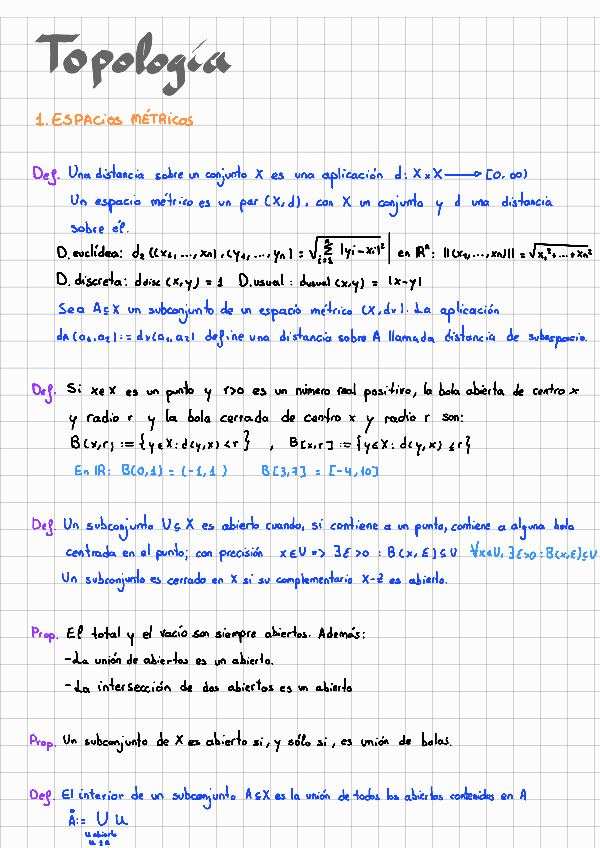 Topología
1. ESPACIOS MÉTRICOS
Def. Una distancia sobre un conjunto X es una aplicación d: X x X → [0, ∞)
Un espacio métrico es un par (X,d), con X un conjunto y d una distancia
sobre él.
D. euclídea: d₂((x₁,...,xn),(y₁,...,yn)) = √∑ᵢ₌₁ⁿ |yi-xi|² | en ℝⁿ: ||(x₁,...,xn)|| = √x₁²+...+xn²
D. discreta: ddisc (x,y) = 1 D. usual: dusual (x,y) = |x-y|
Sea A⊆X un subconjunto de un espacio métrico (X,dx). La aplicación
dA(a₁,a₂) := dx(a₁,a₂) define una distancia sobre A llamada distancia de subespacio.
Def. Si x∈X es un punto y r>0 es un número real positivo, la bola abierta de centro x
y radio r y la bola cerrada de centro x y radio r son:
B(x,r) := {y∈X: d(y,x) < r} , B[x,r] := {y∈X: d(y,x) ≤ r}
En ℝ: B(0,1) = (-1,1) B[3,7] = [-4,10]
Def. Un subconjunto U⊆X es abierto cuando, si contiene a un punto, contiene a alguna bola
centrada en el punto; con precisión x∈U => ∃ε>0 : B(x,ε)⊆U ∀x∈U, ∃ε>0: B(x,ε)⊆U
Un subconjunto es cerrado en X si su complementario X-Z es abierto.
Prop. El total y el vacío son siempre abiertos. Además:
-La unión de abiertos es un abierto.
-La intersección de dos abiertos es un abierto
Prop. Un subconjunto de X es abierto si, y sólo si, es unión de bolas.
Def. El interior de un subconjunto A⊆X es la unión de todos los abiertos contenidos en A
Å := ∪ U
U abierto
U⊆A